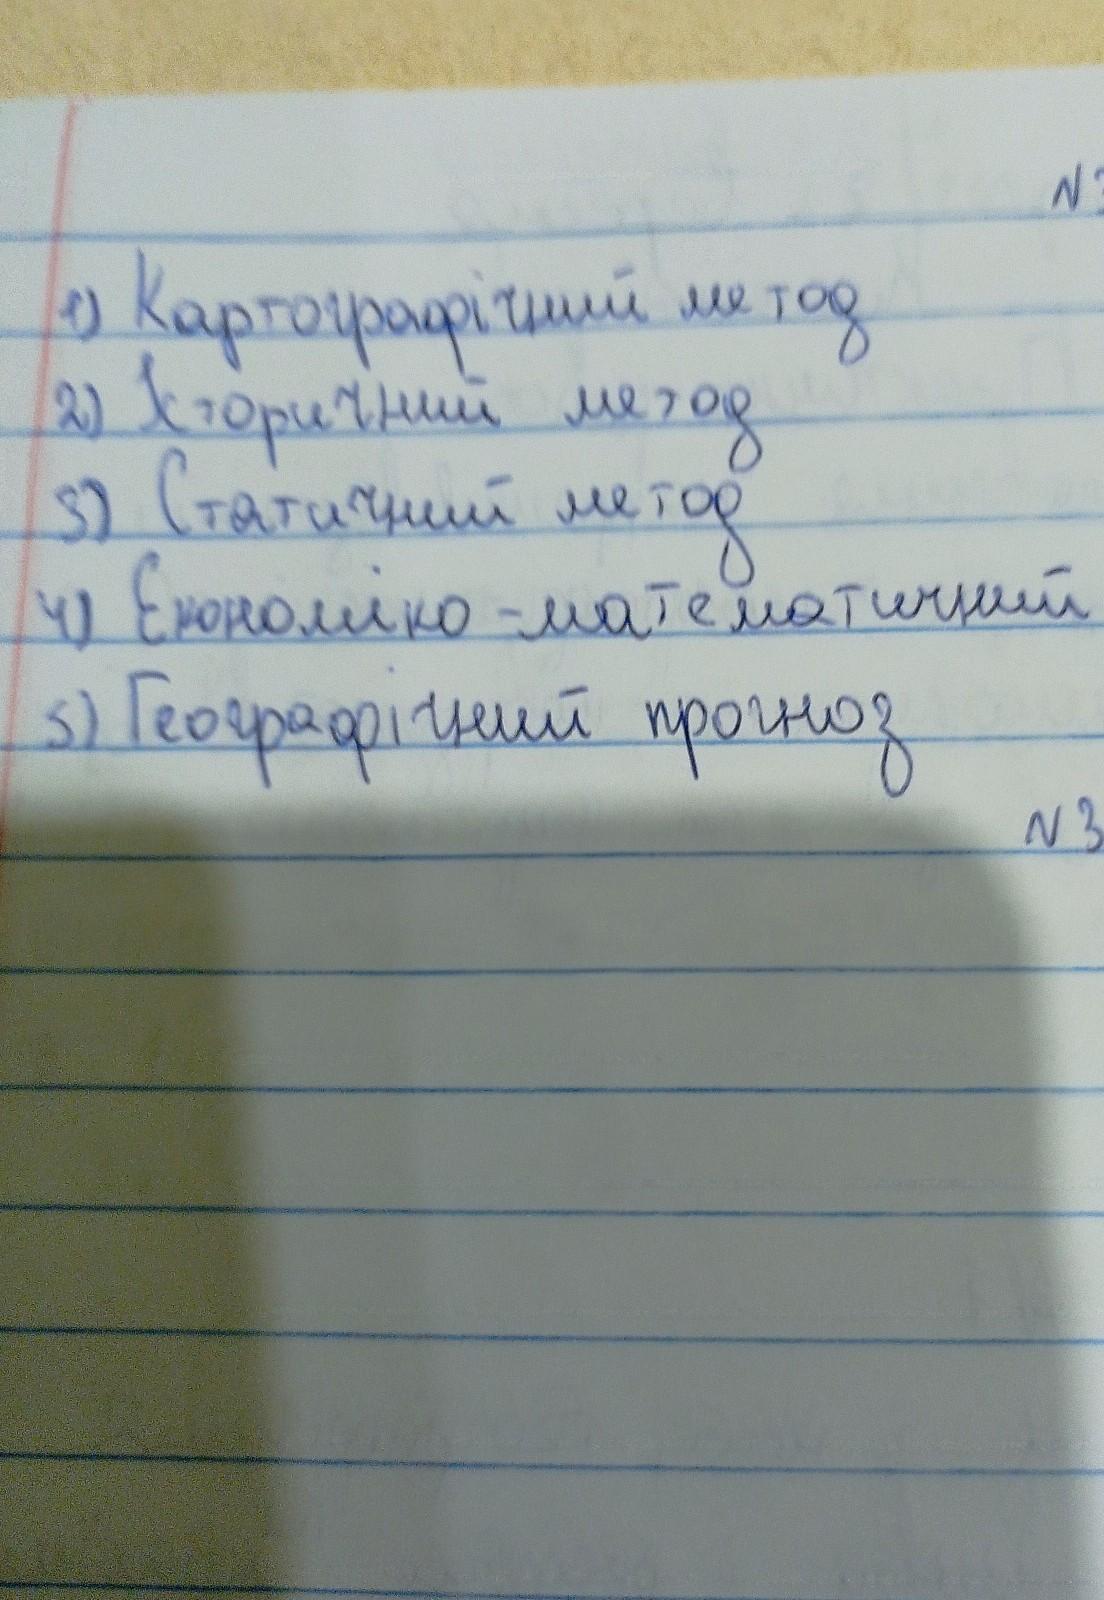 1) Картографічний метод
2) Історичний метод
3) Статичний метод
4) Економіко-математичний
5) Географічний прогноз
N3